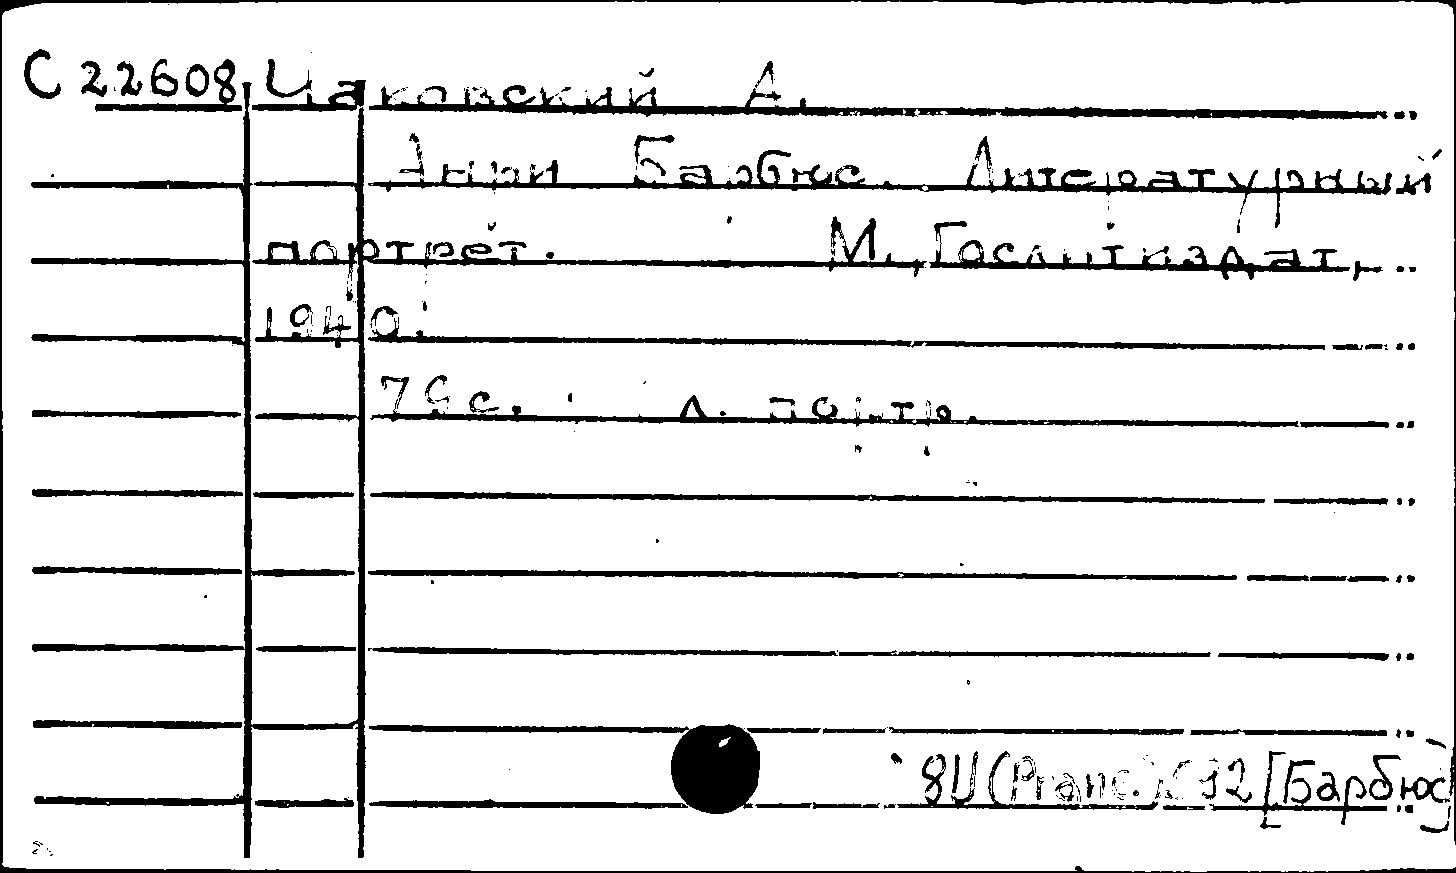 С 22608 Чаковский А.
Анри Барбюс. Литературный
портрет. М., Гослитиздат,
1940.
с. л. портр.
8U(Franc.) [Барбюс]